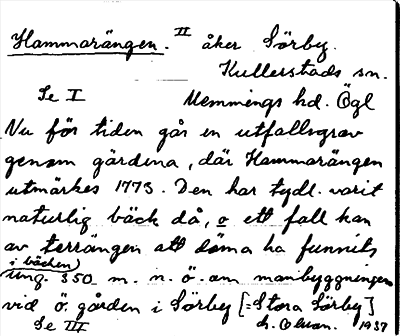 Hammarängen. II åker Sörby.
Kullerstads sn.
Se I Memmings hd. Ögl
Nu för tiden går en utfallsgrav
genom gärdena, där Hammarängen
utmärkes 1773. Den har tydl. varit
naturlig bäck då, o ett fall kan
av terrängen att döma ha funnits
i bäcken
ung. 350 m. n. ö. om manbyggningen
vid ö. gården i Sörby [= Stora Sörby]
Se III 1937